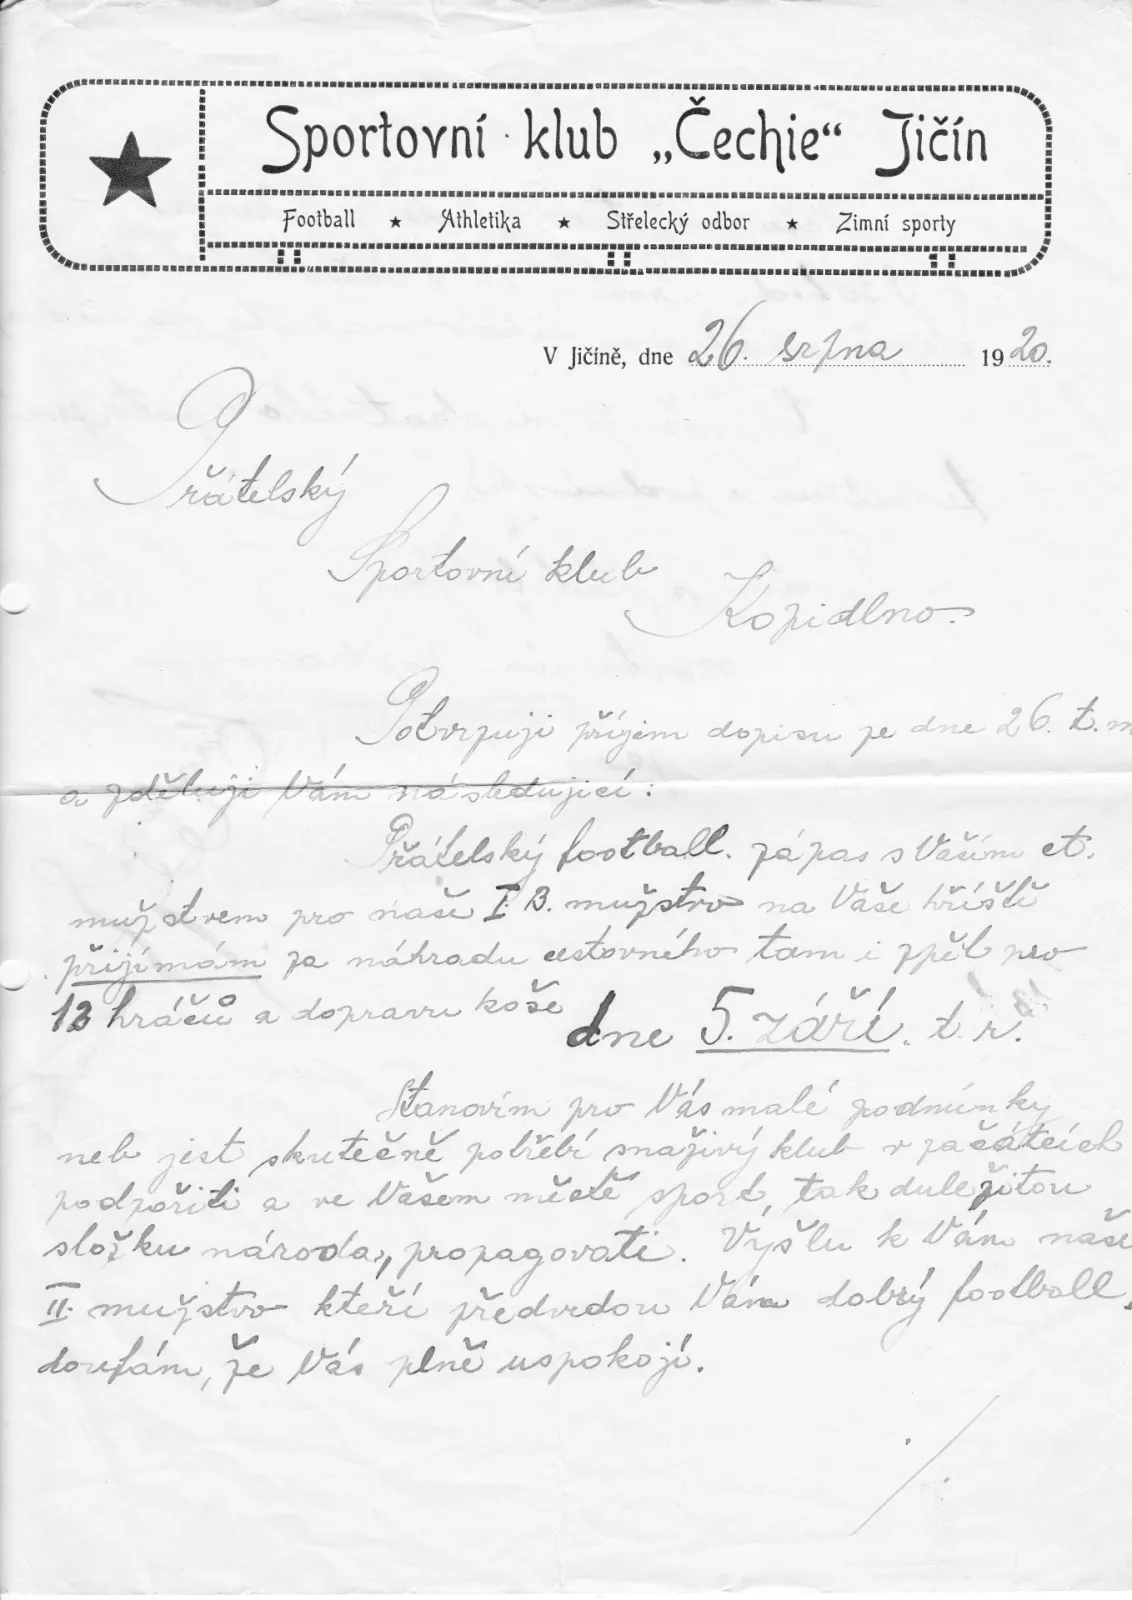 Sportovní klub „Čechie“ Jičín
Football ★ Athletika ★ Střelecký odbor ★ Zimní sporty
V Jičíně, dne 26. srpna 1920.
Přátelský
Sportovní klub
Kopidlno.
Potvrzuji příjem dopisu ze dne 26. t. m
a zděluji Vám následující:
Přátelský football. zápas s Vaším ct.
mužstvem pro naše I. B. mužstvo na Vaše hřiště
přijímám za náhradu cestovného tam i zpět pro
13 hráčů a dopravu koše
dne 5. září. t. r.
Stanovím pro Vás malé podmínky
neb jest skutečně potřebí snaživý klub v začátcích
podpořiti a ve Vašem městě sport, tak duležitou
složku národa, propagovati. Vyšlu k Vám naše
II. mužstvo kteří předvedou Vám dobrý football,
doufám, že Vás plně uspokojí.
./.